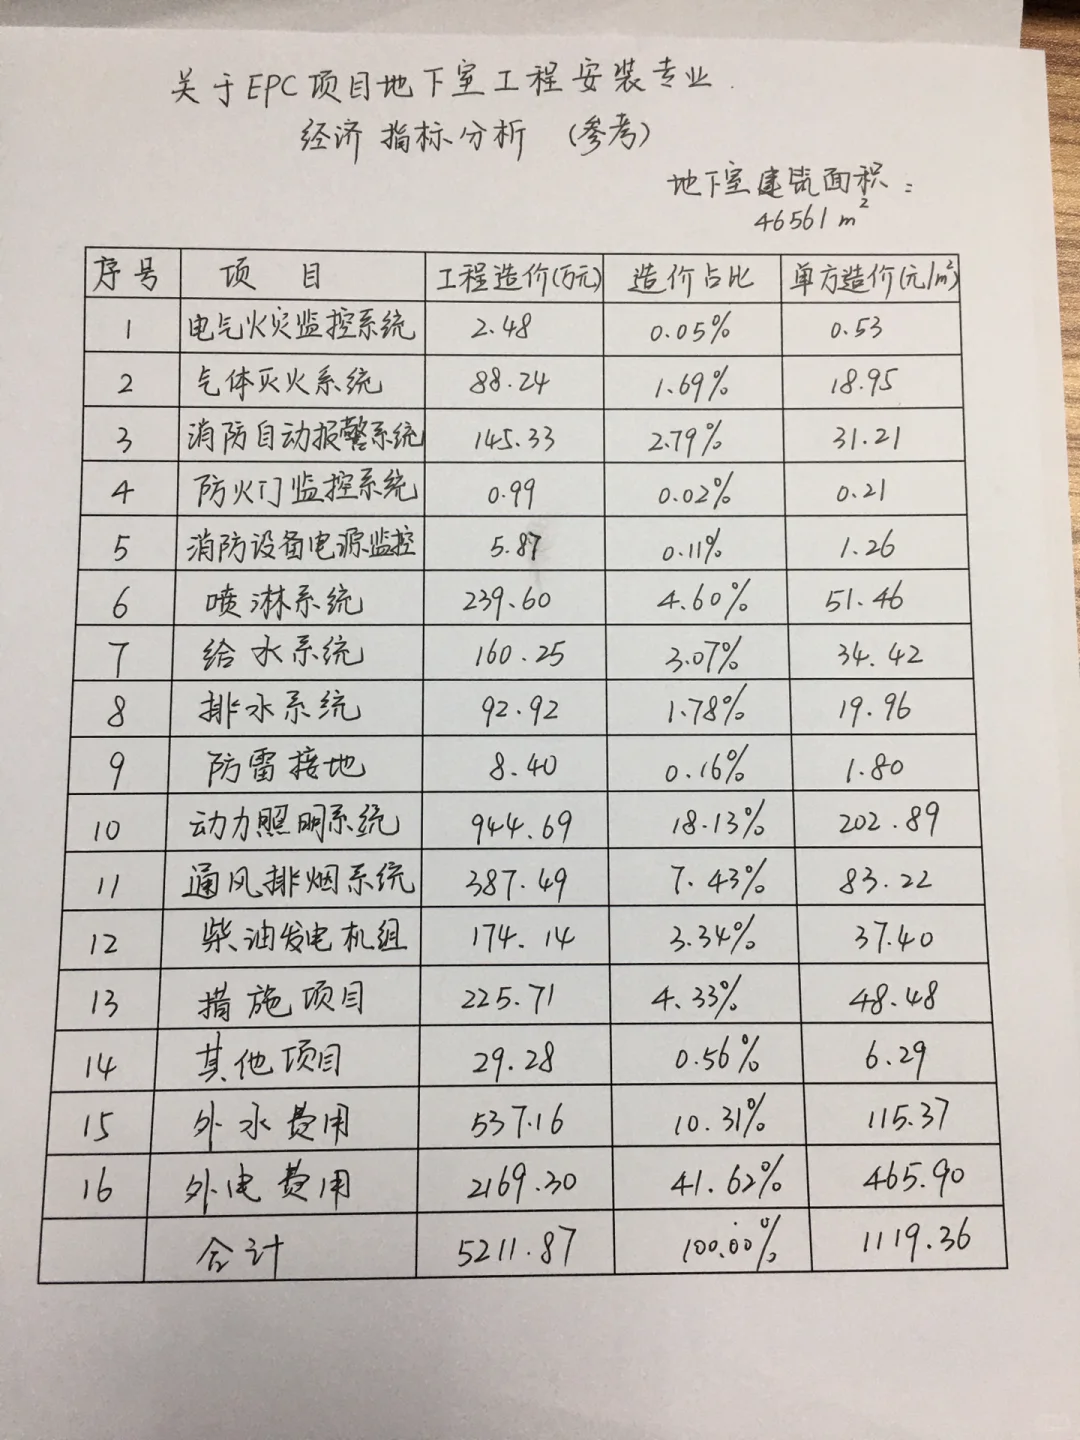 关于EPC项目地下室工程安装专业
经济指标分析 (参考)
地下室建筑面积:
46561m²
序号 项目 工程造价(万元) 造价占比 单方造价(元/m²)
1 电气火灾监控系统 2.48 0.05% 0.53
2 气体灭火系统 88.24 1.69% 18.95
3 消防自动报警系统 145.33 2.79% 31.21
4 防火门监控系统 0.99 0.02% 0.21
5 消防设备电源监控 5.87 0.11% 1.26
6 喷淋系统 239.60 4.60% 51.46
7 给水系统 160.25 3.07% 34.42
8 排水系统 92.92 1.78% 19.96
9 防雷接地 8.40 0.16% 1.80
10 动力照明系统 944.69 18.13% 202.89
11 通风排烟系统 387.49 7.43% 83.22
12 柴油发电机组 174.14 3.34% 37.40
13 措施项目 225.71 4.33% 48.48
14 其他项目 29.28 0.56% 6.29
15 外水费用 537.16 10.31% 115.37
16 外电费用 2169.30 41.62% 465.90
合计 5211.87 100.00% 1119.36